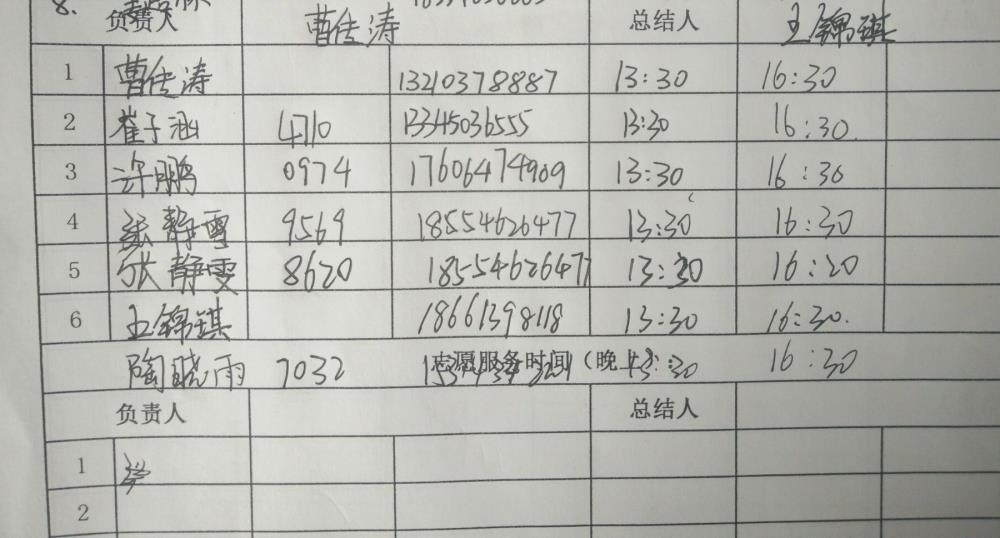 8.
负责人 曹传涛 总结人 王锦琪
1 曹传涛 13210378887 13:30 16:30
2 崔子涵 4710 13345036555 13:30 16:30.
3 许鹏 0974 17606474909 13:30 16:30
4 张静雯 9569 18554626477 13:30 16:30
5 张静雯 8620 18554626477 13:30 16:20
6 王锦琪 18661398118 13:30 16:30.
陶晓雨 7032 志愿服务时间（晚上 13:30 16:30
负责人 总结人
1
2